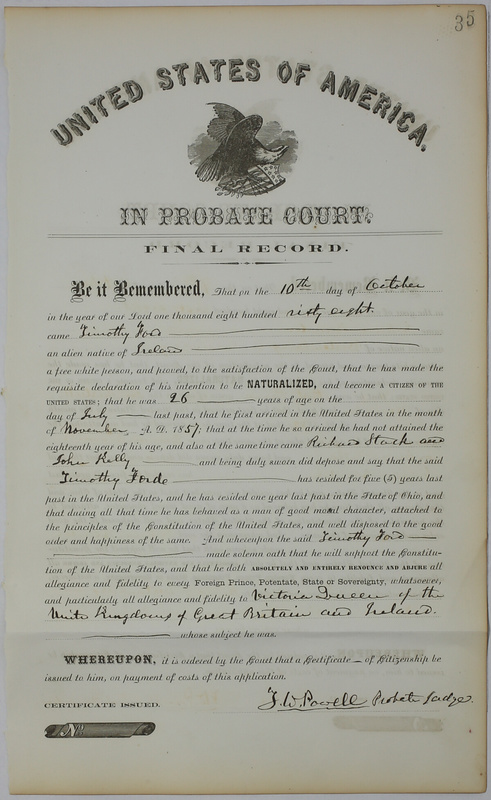 35
UNITED STATES OF AMERICA.
IN PROBATE COURT.
FINAL RECORD.
Be it Remembered, That on the 10th day of October
in the year of our Lord one thousand eight hundred sixty eight.
came Timothy Ford
an alien native of Ireland
a free white person, and proved, to the satisfaction of the Court, that he has made the
requisite declaration of his intention to be NATURALIZED, and become A CITIZEN OF THE
UNITED STATES; that he was 26 years of age on the
day of July last past, that he first arrived in the United States in the month
of November, A. D. 1857; that at the time he so arrived he had not attained the
eighteenth year of his age, and also at the same time came Richard Stack and
John Kelly and being duly sworn did depose and say that the said
Timothy Forde has resided for five (5) years last
past in the United States, and he has resided one year last past in the State of Ohio, and
that during all that time he has behaved as a man of good moral character, attached to
the principles of the Constitution of the United States, and well disposed to the good
order and happiness of the same. And whereupon the said Timothy Ford
made solemn oath that he will support the Constitu-
tion of the United States, and that he doth ABSOLUTELY AND ENTIRELY RENOUNCE AND ABJURE all
allegiance and fidelity to every Foreign Prince, Potentate, State or Sovereignty, whatsoever,
and particularly all allegiance and fidelity to Victoria Queen of the
Unite Kingdoms of Great Britain and Ireland.
whose subject he was.
WHEREUPON, it is ordered by the Court that a Certificate of Citizenship be
issued to him, on payment of costs of this application.
CERTIFICATE ISSUED.
T. W. Powell Probate Judge.